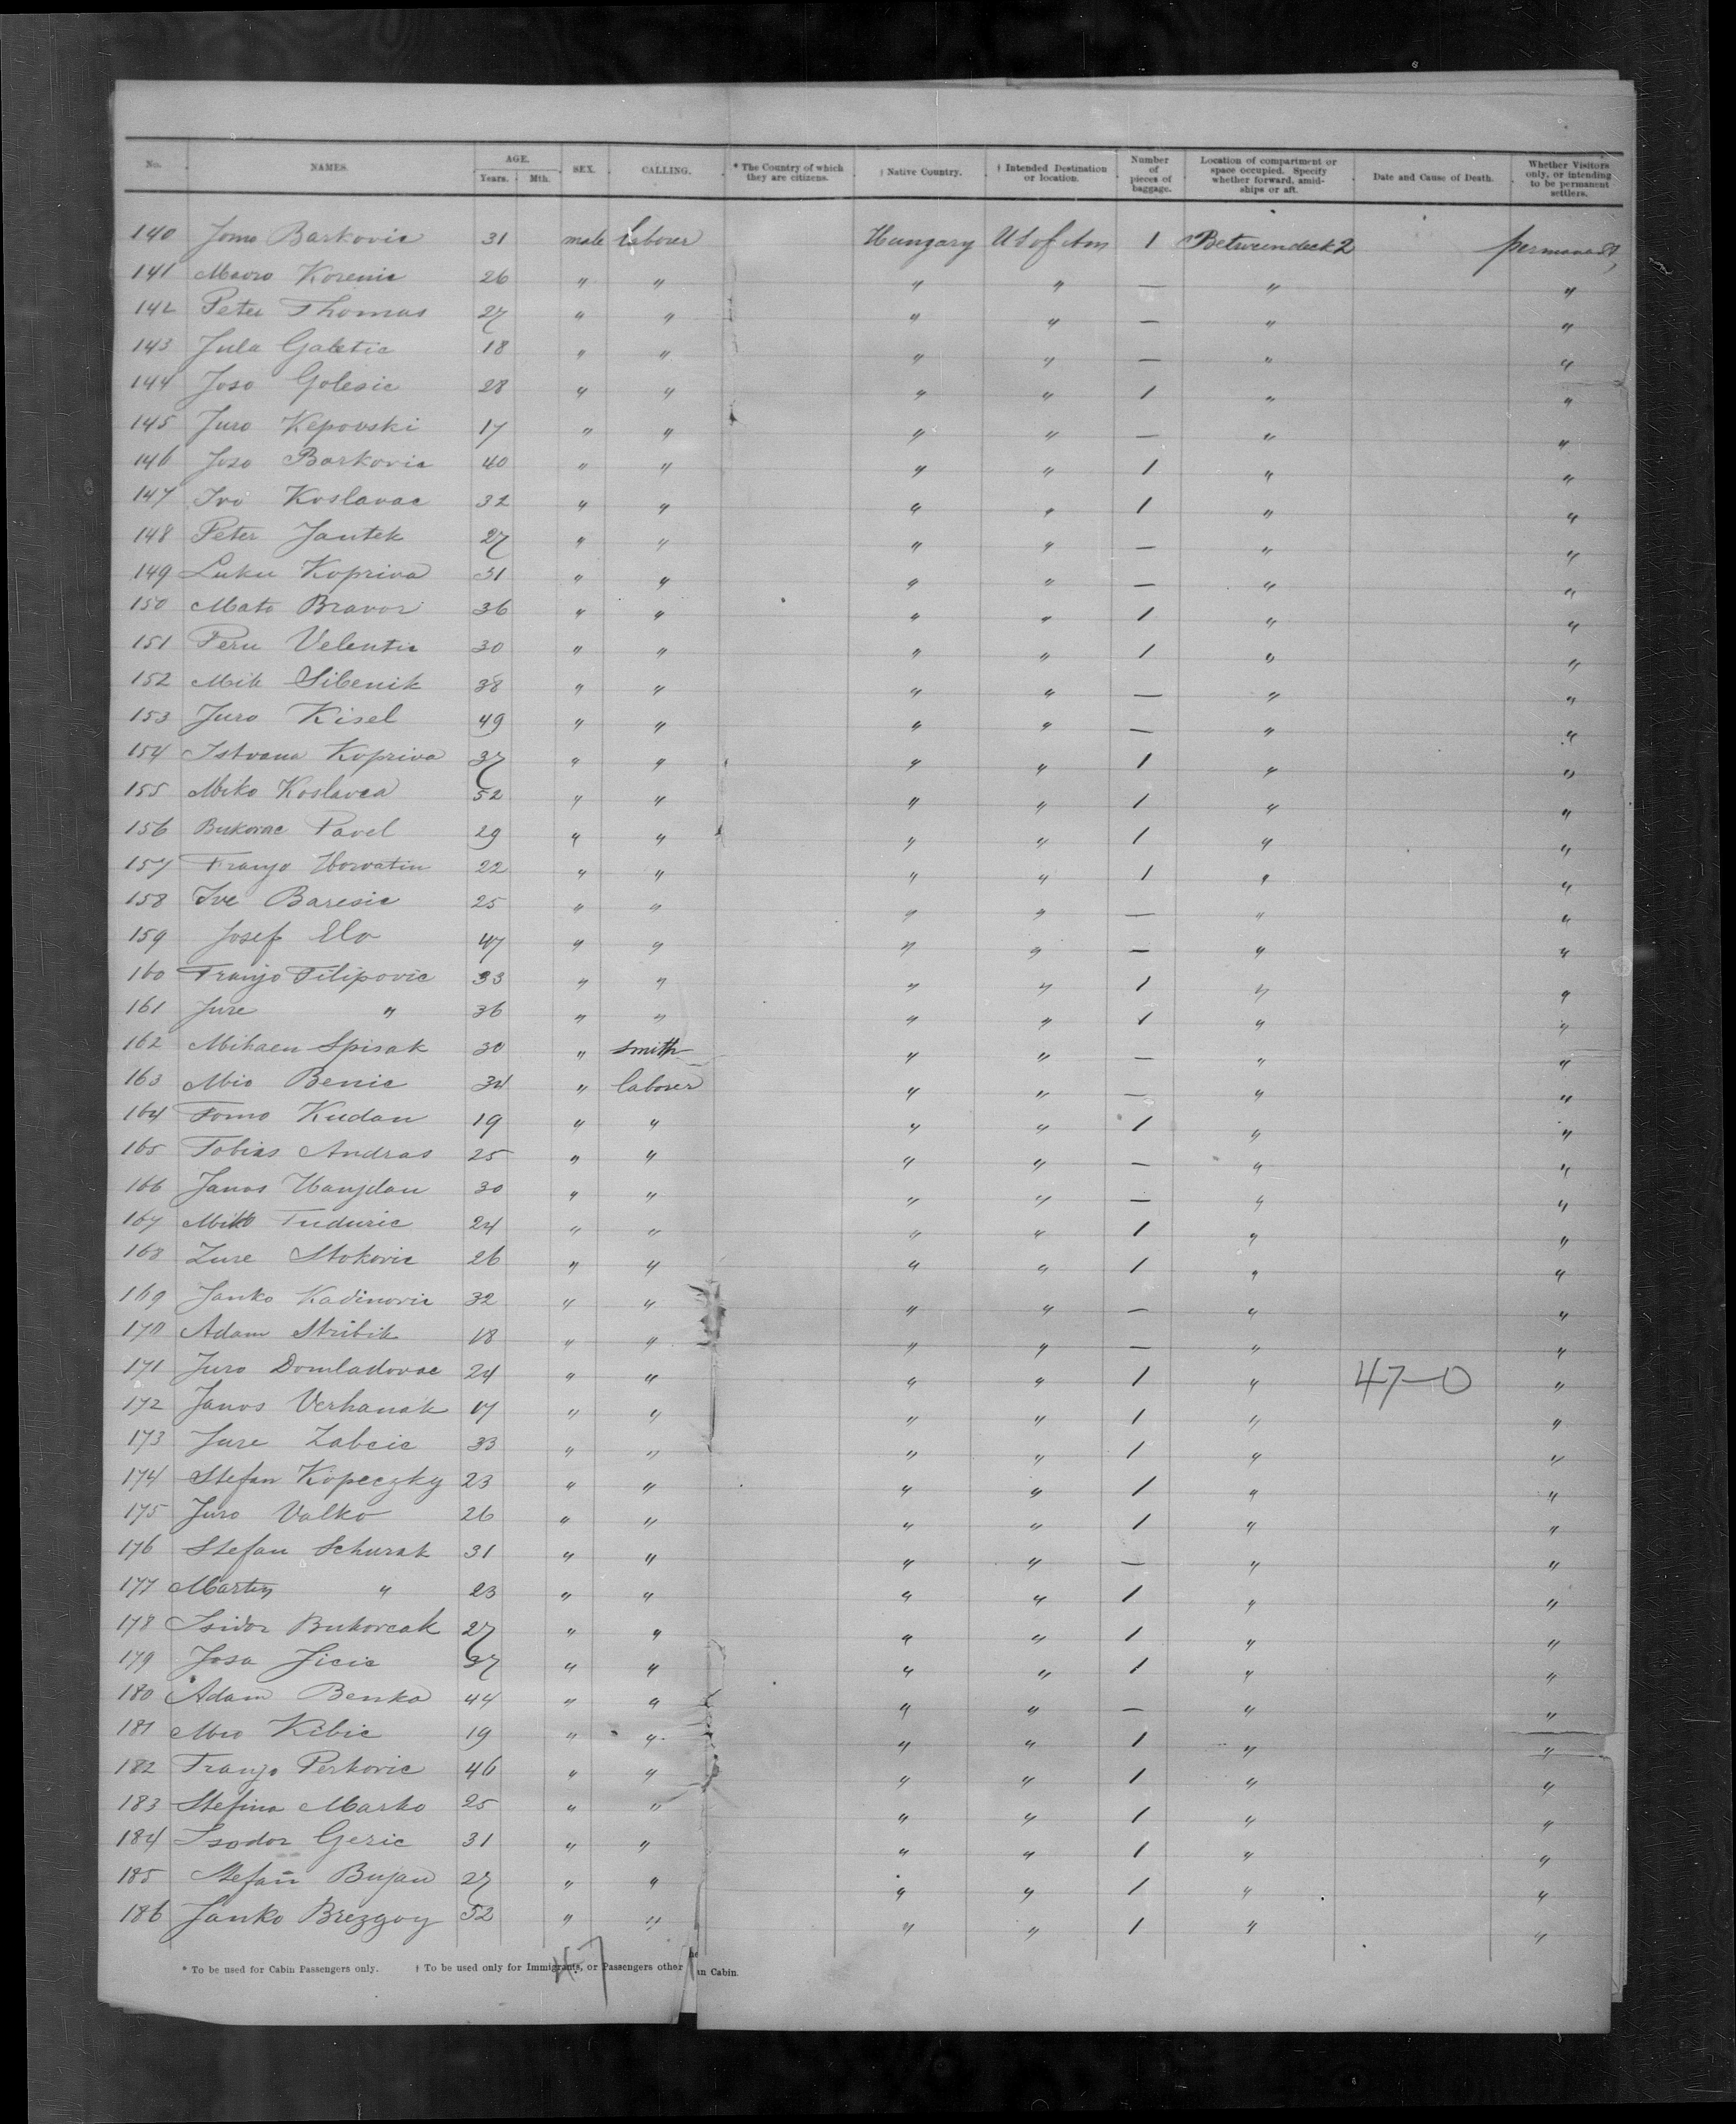 No. NAMES. AGE. Years. Mth. SEX. CALLING. * The Country of which they are citizens. † Native Country. † Intended Destination or location. Number of pieces of baggage. Location of compartment or space occupied. Specify whether forward, amid-ships or aft. Date and Cause of Death. Whether Visitors only, or intending to be permanent settlers.
140 Jomo Barkovic 31 male laborer Hungary U S of Am 1 Betweendeck 2 permanent
141 Mavro Korenic 26 " " " " — " "
142 Peter Thomas 27 " " " " — " "
143 Jula Galetic 18 " " " " — " "
144 Joso Golesic 28 " " " " 1 " "
145 Juro Kepovski 17 " " " " — " "
146 Joso Barkovic 40 " " " " 1 " "
147 Ivo Koslavac 32 " " " " 1 " "
148 Peter Jantek 27 " " " " — " "
149 Luku Kopriva 31 " " " " — " "
150 Mato Bravor 36 " " " " 1 " "
151 Peru Velentic 30 " " " " 1 " "
152 Mik Sibenik 38 " " " " — " "
153 Juro Kisel 49 " " " " — " "
154 Istvana Kopriva 37 " " " " 1 " "
155 Miko Koslavca 52 " " " " 1 " "
156 Bukovac Pavel 29 " " " " 1 " "
157 Franjo Horvatin 22 " " " " 1 " "
158 Ive Baresic 25 " " " " — " "
159 Josef Elo 47 " " " " — " "
160 Franjo Filipovic 33 " " " " 1 " "
161 Jure " 36 " " " " 1 " "
162 Mihaen Spisak 30 " smith " " — " "
163 Mio Benic 34 " laborer " " — " "
164 Tomo Kudan 19 " " " " 1 " "
165 Tobias Andras 25 " " " " — " "
166 Janos Hanjdan 30 " " " " — " "
167 Mikto Tuduric 24 " " " " 1 " "
168 Zure Stokovic 26 " " " " 1 " "
169 Janko Kadinovic 32 " " " " — " "
170 Adam Stribik 18 " " " " — " "
171 Juro Domladovac 24 " " " " 1 " 47-0 "
172 Janos Verhanak 17 " " " " 1 " "
173 Jure Zabcic 33 " " " " 1 " "
174 Stefan Kopeczky 23 " " " " 1 " "
175 Juro Valko 26 " " " " 1 " "
176 Stefan Schurak 31 " " " " — " "
177 Martin " 23 " " " " 1 " "
178 Isidor Bukovcak 27 " " " " 1 " "
179 Josa Jicic 37 " " " " 1 " "
180 Adam Benka 44 " " " " — " "
181 Mio Kibic 19 " " " " 1 " "
182 Franjo Perkovic 46 " " " " 1 " "
183 Stefina Marko 25 " " " " 1 " "
184 Isodor Geric 31 " " " " 1 " "
185 Stefan Bujan 27 " " " " 1 " "
186 Janko Brezgoy 52 " " " " 1 " "
47
* To be used for Cabin Passengers only. † To be used only for Immigrants, or Passengers other an Cabin.